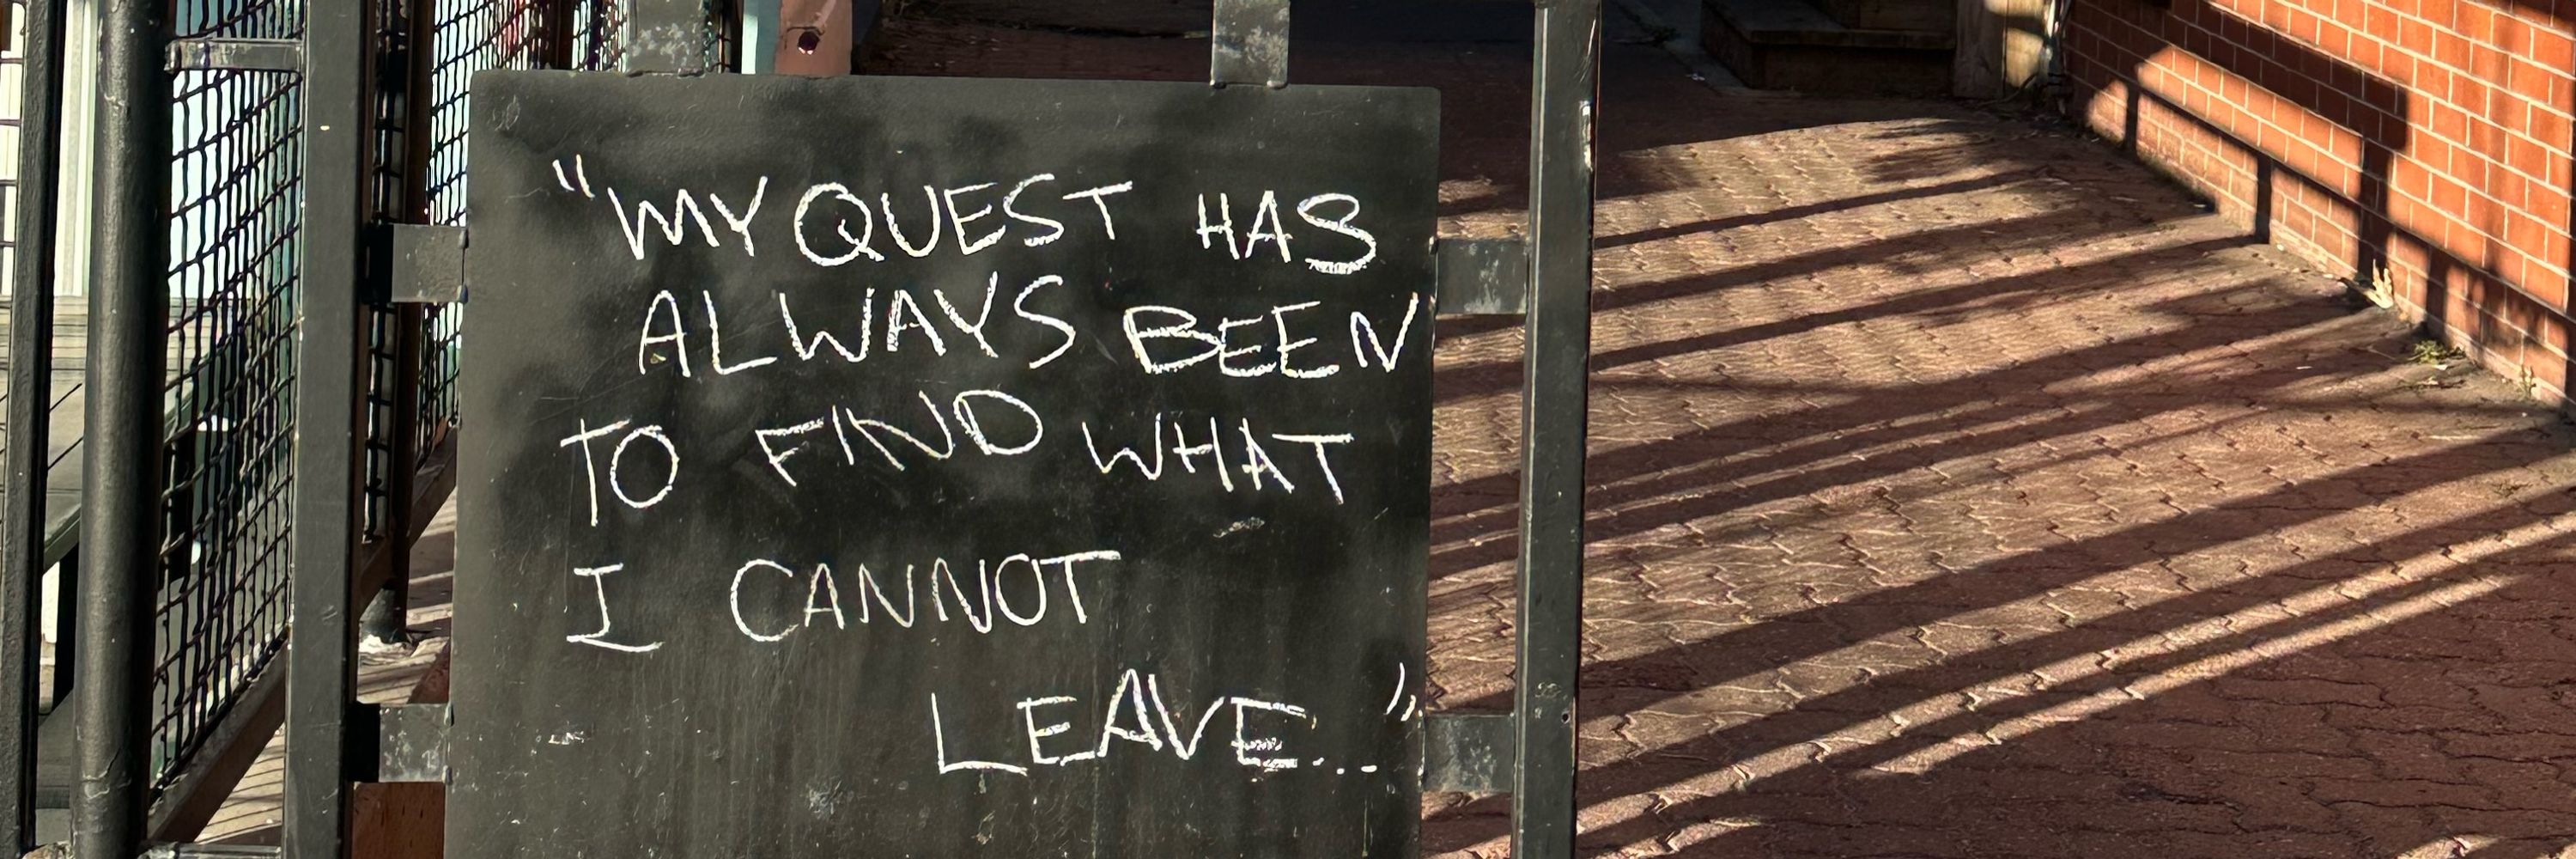 "MY QUEST HAS
ALWAYS BEEN
TO FIND WHAT
I CANNOT
LEAVE..."